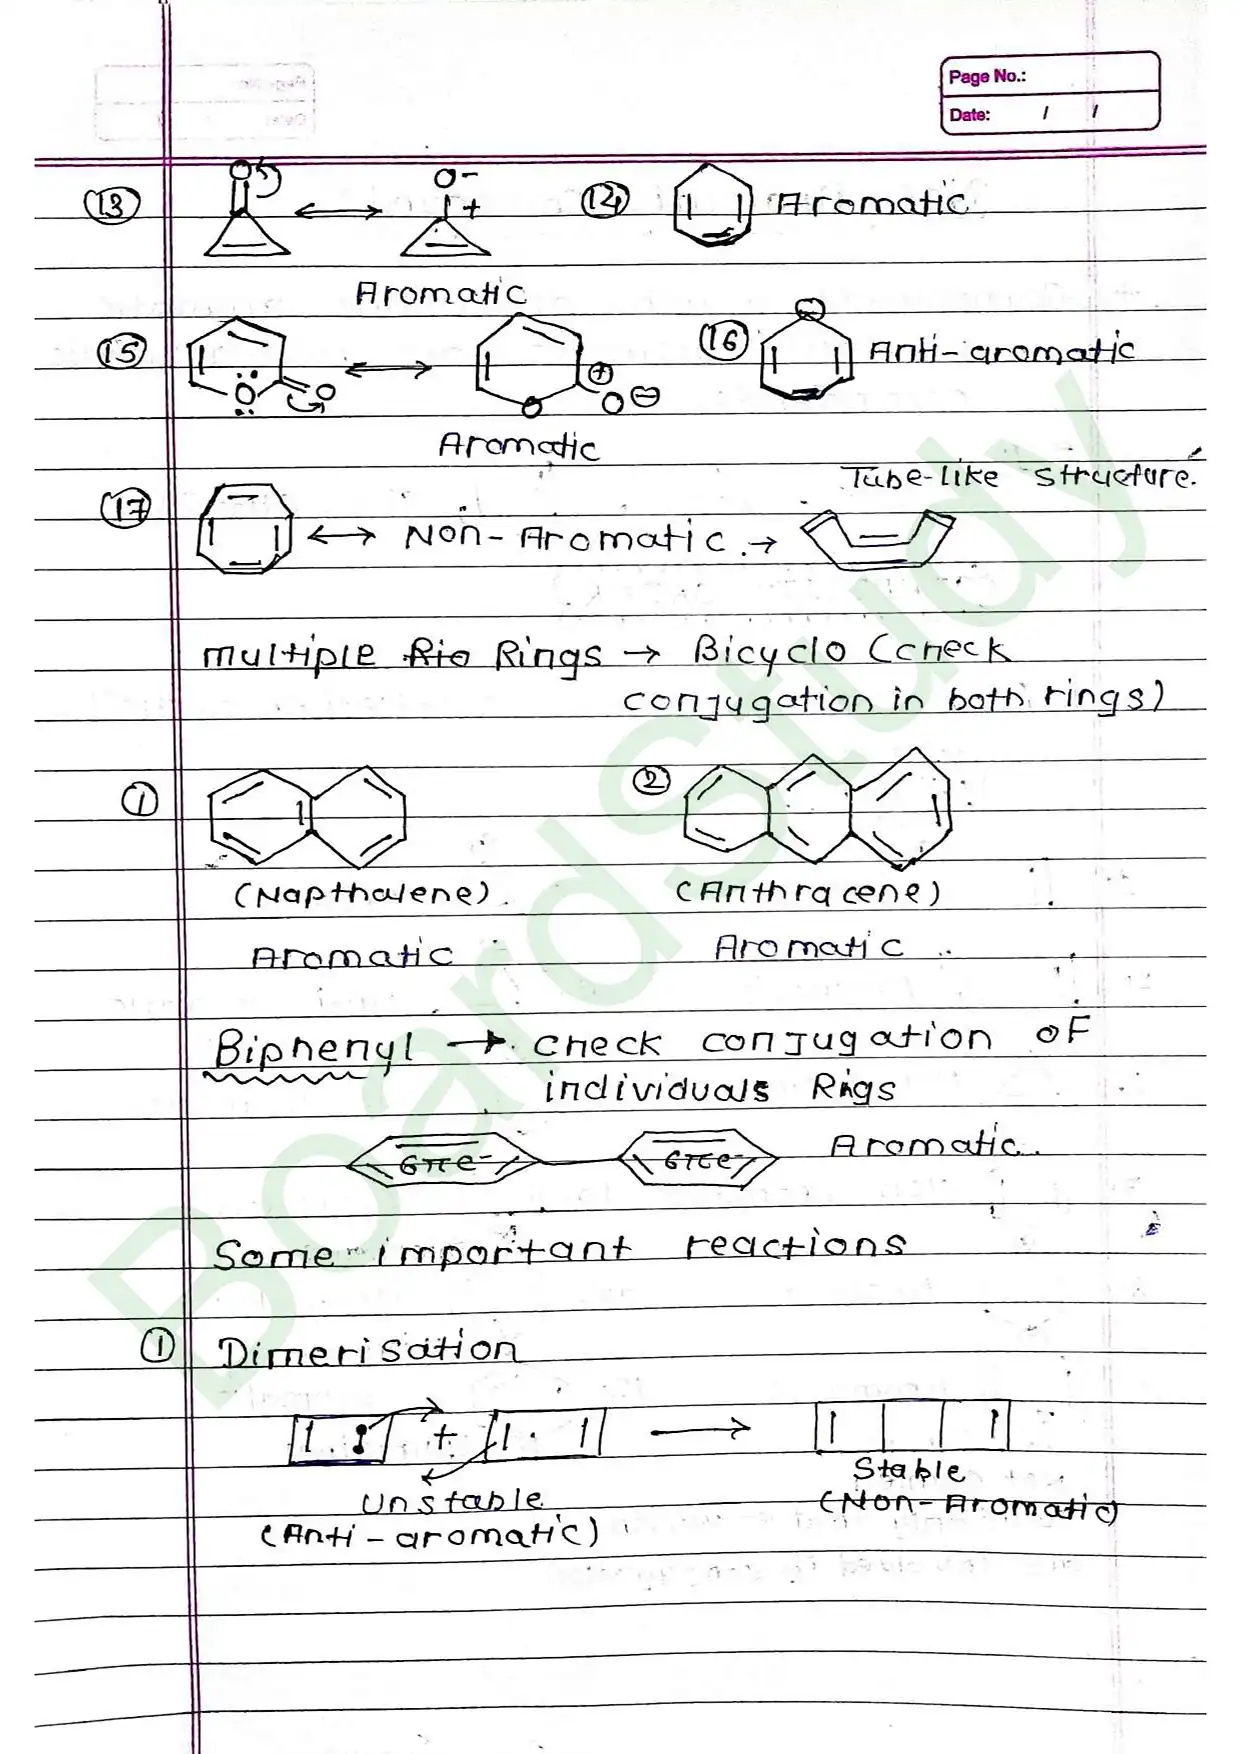 Page No.:
Date: / /
13 O O- +
14 Aromatic
Aromatic
15 O O + O O -
16 - Anti-aromatic
Aromatic
Tube-like structure.
17 Non-Aromatic. →
multiple Rio Rings → Bicyclo (check
conjugation in both rings)
1 2
(Napthalene) (Anthracene)
Aromatic Aromatic
Biphenyl → check conjugation of
individuals Rings
6πe- 6πe- Aromatic.
Some important reactions
1 Dimerisation
+ →
Stable
Unstable (Non-Aromatic)
(Anti-aromatic)
BoardStudy